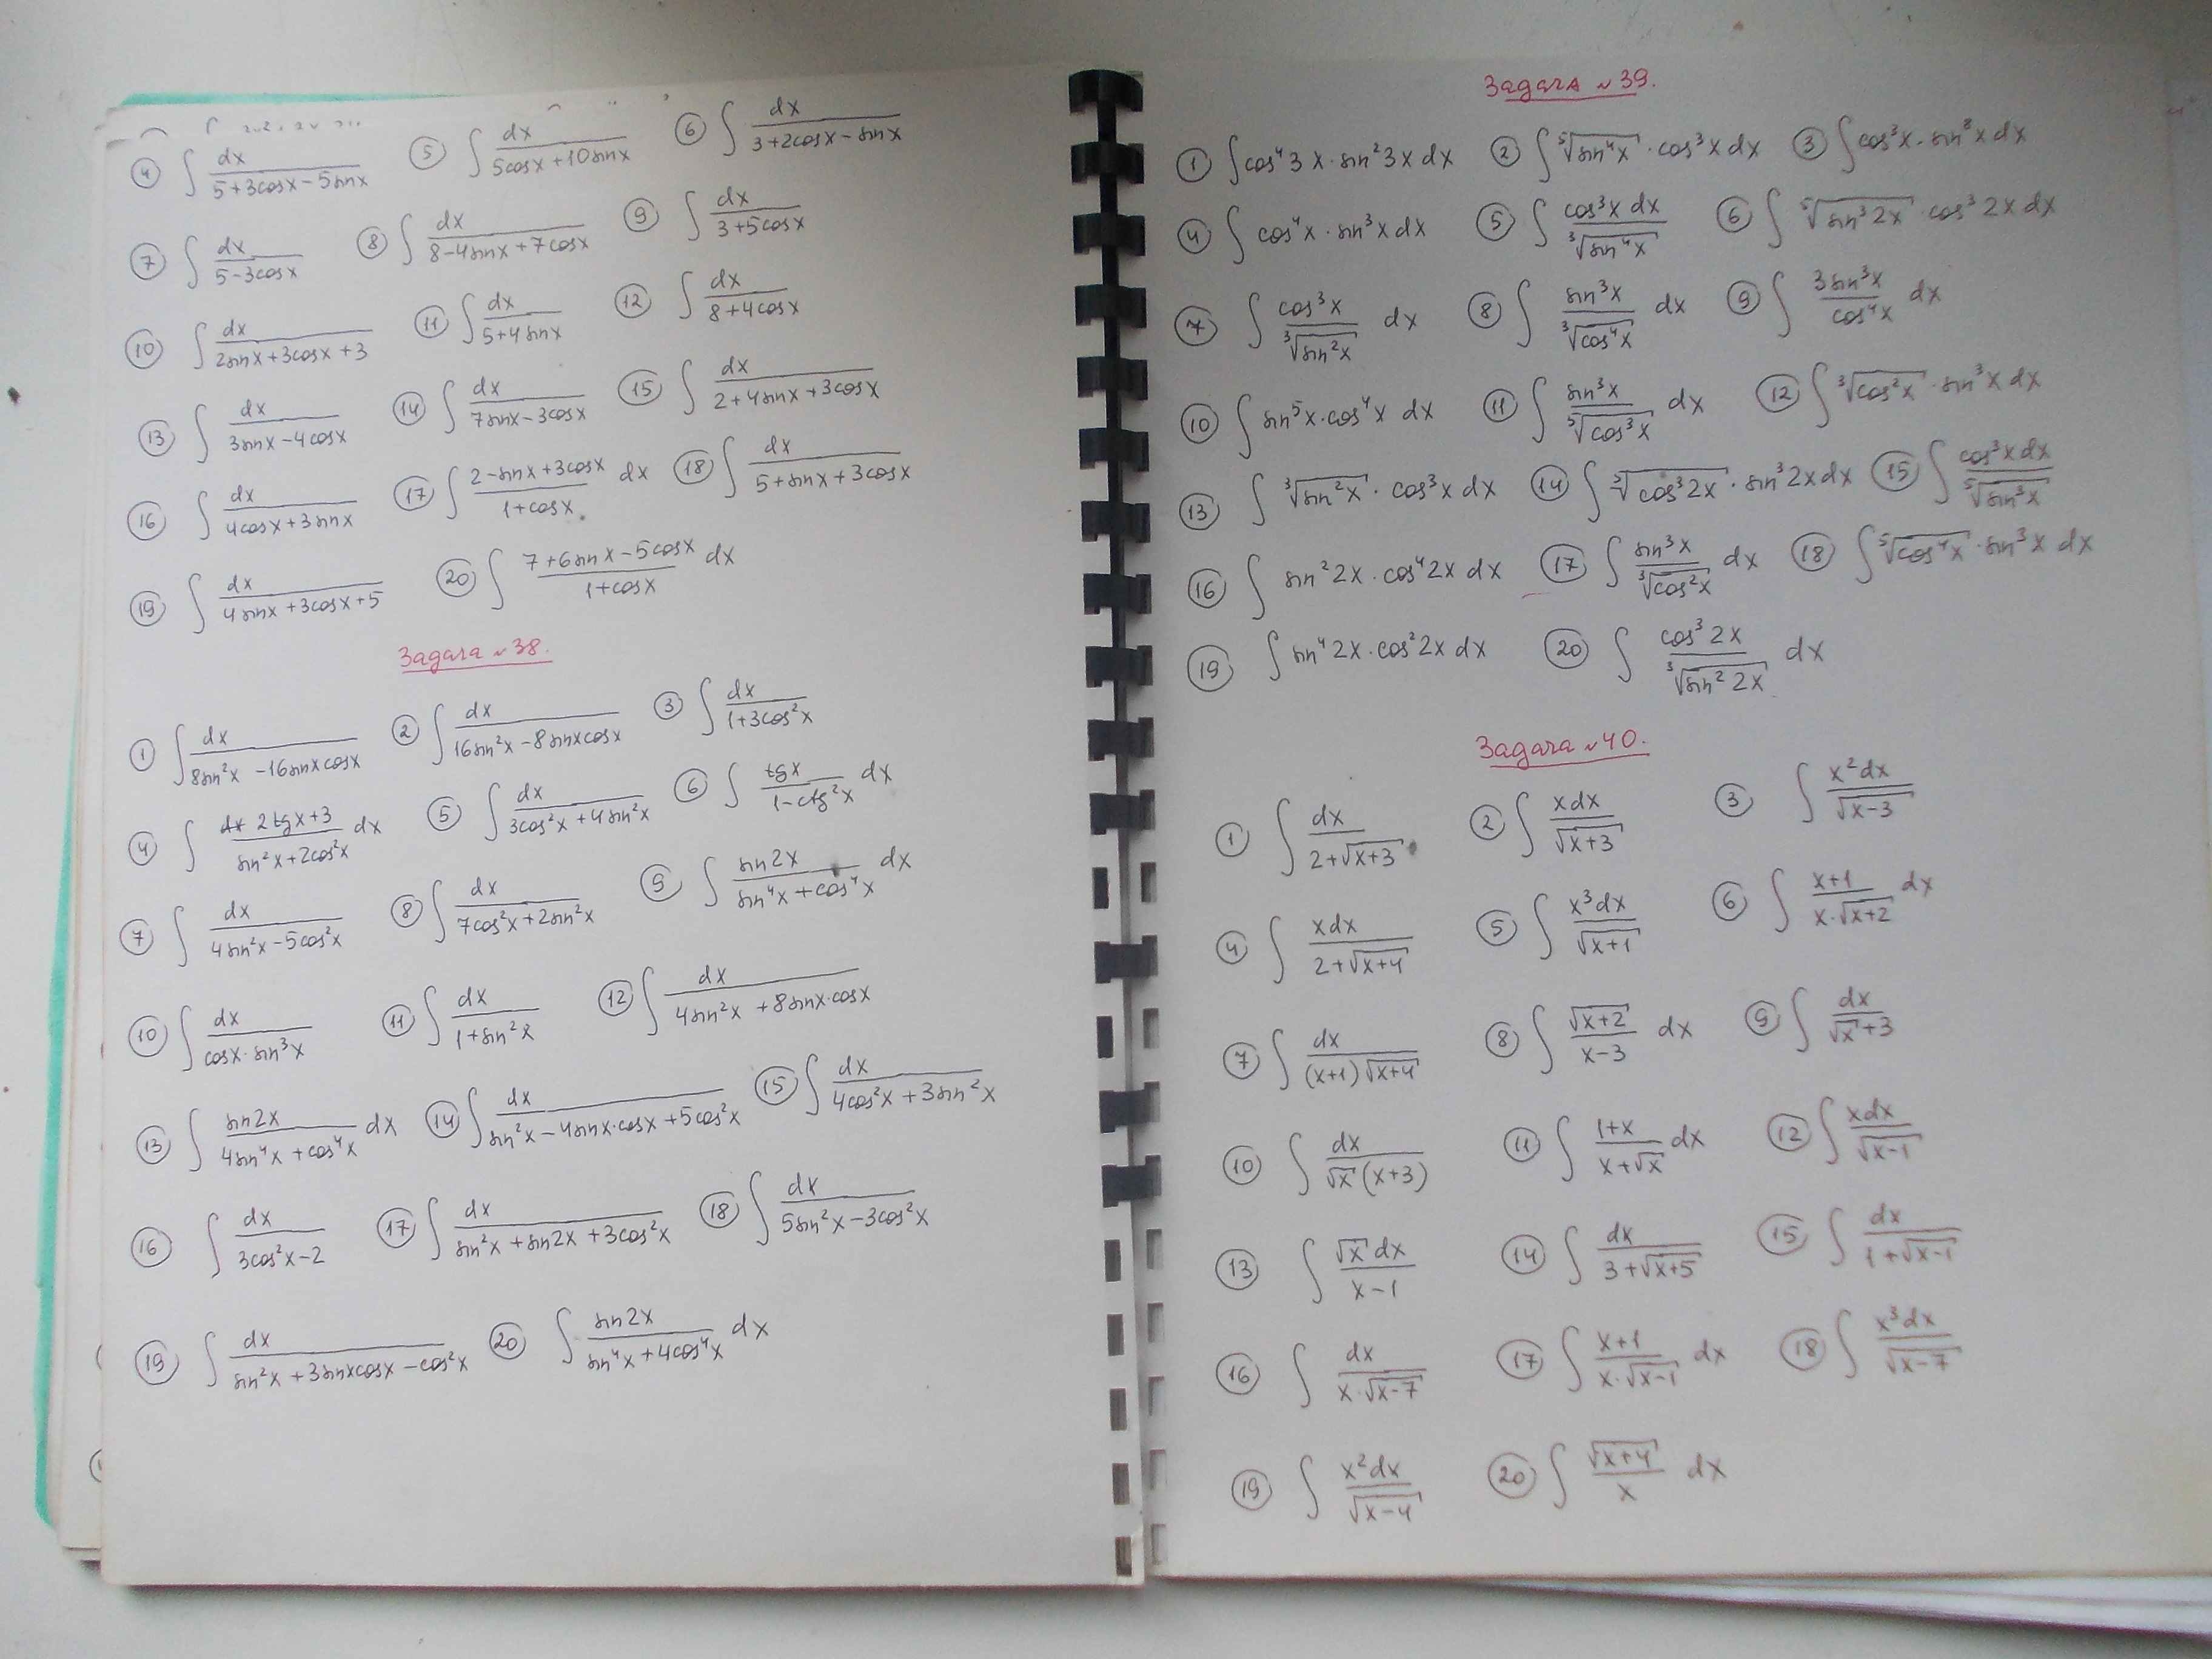 ④ ∫ dx/(5+3cosx−5sinx) ⑤ ∫ dx/(5cosx+10sinx) ⑥ ∫ dx/(3+2cosx−sinx)
⑦ ∫ dx/(5−3cosx) ⑧ ∫ dx/(8−4sinx+7cosx) ⑨ ∫ dx/(3+5cosx)
⑩ ∫ dx/(2sinx+3cosx+3) ⑪ ∫ dx/(5+4sinx) ⑫ ∫ dx/(8+4cosx)
⑬ ∫ dx/(3sinx−4cosx) ⑭ ∫ dx/(7sinx−3cosx) ⑮ ∫ dx/(2+4sinx+3cosx)
⑯ ∫ dx/(4cosx+3sinx) ⑰ ∫ (2−sinx+3cosx)/(1+cosx) dx ⑱ ∫ dx/(5+sinx+3cosx)
⑲ ∫ dx/(4sinx+3cosx+5) ⑳ ∫ (7+6sinx−5cosx)/(1+cosx) dx
Задача №38.
① ∫ dx/(8sin²x−16sinxcosx) ② ∫ dx/(16sin²x−8sinxcosx) ③ ∫ dx/(1+3cos²x)
④ ∫ (2tgx+3)/(sin²x+2cos²x) dx ⑤ ∫ dx/(3cos²x+4sin²x) ⑥ ∫ tgx/(1−ctg²x) dx
⑦ ∫ dx/(4sin²x−5cos²x) ⑧ ∫ dx/(7cos²x+2sin²x) ⑨ ∫ sin2x/(sin⁴x+cos⁴x) dx
⑩ ∫ dx/(cosx·sin³x) ⑪ ∫ dx/(1+sin²x) ⑫ ∫ dx/(4sin²x+8sinx·cosx)
⑬ ∫ sin2x/(4sin⁴x+cos⁴x) dx ⑭ ∫ dx/(sin²x−4sinx·cosx+5cos²x) ⑮ ∫ dx/(4cos²x+3sin²x)
⑯ ∫ dx/(3cos²x−2) ⑰ ∫ dx/(sin²x+sin2x+3cos²x) ⑱ ∫ dx/(5sin²x−3cos²x)
⑲ ∫ dx/(sin²x+3sinxcosx−cos²x) ⑳ ∫ sin2x/(sin⁴x+4cos⁴x) dx
Задача №39.
① ∫cos⁴3x·sin²3x dx ② ∫ ⁵√(sin⁴x)·cos³x dx ③ ∫cos³x·sin⁸x dx
④ ∫ cos⁴x·sin³x dx ⑤ ∫ cos³x dx/³√(sin⁴x) ⑥ ∫ ⁵√(sin³2x)·cos³2x dx
⑦ ∫ cos³x/³√(sin²x) dx ⑧ ∫ sin³x/³√(cos⁴x) dx ⑨ ∫ 3sin³x/cos⁴x dx
⑩ ∫ sin⁵x·cos⁴x dx ⑪ ∫ sin³x/⁵√(cos³x) dx ⑫ ∫ ³√(cos²x)·sin³x dx
⑬ ∫ ³√(sin²x)·cos³x dx ⑭ ∫ ⁵√(cos³2x)·sin³2x dx ⑮ ∫ cos³x dx/⁵√(sin³x)
⑯ ∫ sin²2x·cos⁴2x dx ⑰ ∫ sin³x/³√(cos²x) dx ⑱ ∫ ⁵√(cos⁴x)·sin³x dx
⑲ ∫ sin⁴2x·cos²2x dx ⑳ ∫ cos³2x/³√(sin²2x) dx
Задача №40.
① ∫ dx/(2+√(x+3)) ② ∫ xdx/√(x+3) ③ ∫ x²dx/√(x−3)
④ ∫ xdx/(2+√(x+4)) ⑤ ∫ x³dx/√(x+1) ⑥ ∫ (x+1)/(x·√(x+2)) dx
⑦ ∫ dx/((x+1)√(x+4)) ⑧ ∫ √(x+2)/(x−3) dx ⑨ ∫ dx/(√x+3)
⑩ ∫ dx/(√x(x+3)) ⑪ ∫ (1+x)/(x+√x) dx ⑫ ∫ xdx/√(x−1)
⑬ ∫ √x dx/(x−1) ⑭ ∫ dx/(3+√(x+5)) ⑮ ∫ dx/(1+√(x−1))
⑯ ∫ dx/(x·√(x−7)) ⑰ ∫ (x+1)/(x·√(x−1)) dx ⑱ ∫ x³dx/√(x−7)
⑲ ∫ x²dx/√(x−4) ⑳ ∫ √(x+4)/x dx